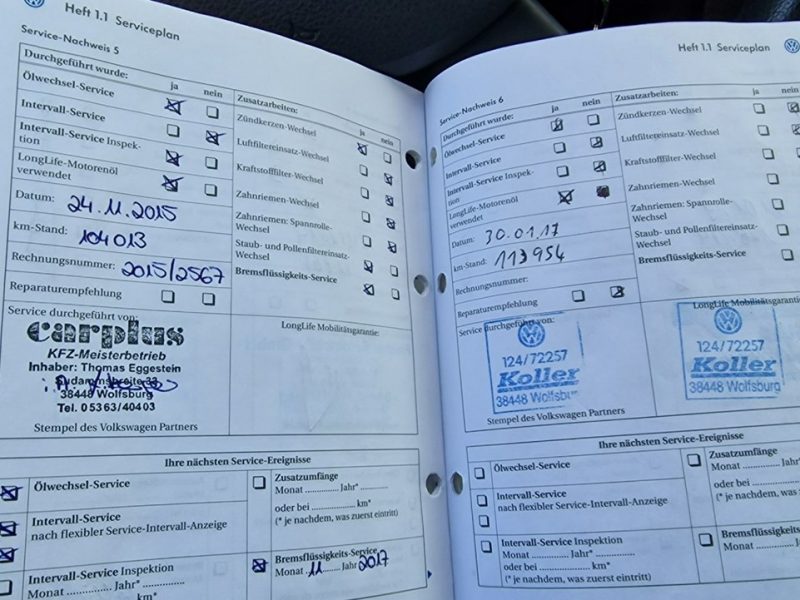 Heft 1.1 Serviceplan
Service-Nachweis 5
Durchgeführt wurde: ja nein
Ölwechsel-Service
Intervall-Service
Intervall-Service Inspek-
tion
LongLife-Motorenöl
verwendet
Datum: 24.11.2015
km-Stand: 104013
Rechnungsnummer: 2015/2567
Reparaturempfehlung
Zusatzarbeiten: ja nein
Zündkerzen-Wechsel
Luftfiltereinsatz-Wechsel
Kraftstofffilter-Wechsel
Zahnriemen-Wechsel
Zahnriemen: Spannrolle-
Wechsel
Staub- und Pollenfiltereinsatz-
Wechsel
Bremsflüssigkeits-Service
Service durchgeführt von:
carplus
KFZ-Meisterbetrieb
Inhaber: Thomas Eggestein
38448 Wolfsburg
Tel. 05363/40403
Stempel des Volkswagen Partners
LongLife Mobilitätsgarantie:
Ihre nächsten Service-Ereignisse
Ölwechsel-Service
Intervall-Service
nach flexibler Service-Intervall-Anzeige
Intervall-Service Inspektion
Monat ............ Jahr* ............
............ km*
Zusatzumfänge
Monat ............ Jahr* ............
oder bei ............ km*
(* je nachdem, was zuerst eintritt)
Bremsflüssigkeits-Service
Monat 11 Jahr 2017
Heft 1.1 Serviceplan
Service-Nachweis 6
Durchgeführt wurde: ja nein
Ölwechsel-Service
Intervall-Service
Intervall-Service Inspek-
tion
LongLife-Motorenöl
verwendet
Datum: 30.01.17
km-Stand: 113954
Rechnungsnummer:
Reparaturempfehlung
Zusatzarbeiten:
Zündkerzen-Wechsel
Luftfiltereinsatz-Wechsel
Kraftstofffilter-Wechsel
Zahnriemen-Wechsel
Zahnriemen: Spannrolle-
Wechsel
Staub- und Pollenfiltereinsatz-
Wechsel
Bremsflüssigkeits-Service
Service durchgeführt von:
124/72257
Koller
38448 Wolfsburg
Stempel des Volkswagen Partners
LongLife Mobilitätsgarantie:
124/72257
Koller
38448 Wolfsburg
Ihre nächsten Service-Ereignisse
Ölwechsel-Service
Intervall-Service
nach flexibler Service-Intervall-Anzeige
Intervall-Service Inspektion
Monat ............ Jahr* ............
oder bei ............ km*
(* je nachdem, was zuerst eintritt)
Zusatzumfänge
Monat ............ Jahr*
oder bei ............ km*
(* je nachdem, was zuerst
Bremsflüssigkeits-Service
Monat ............ Jahr